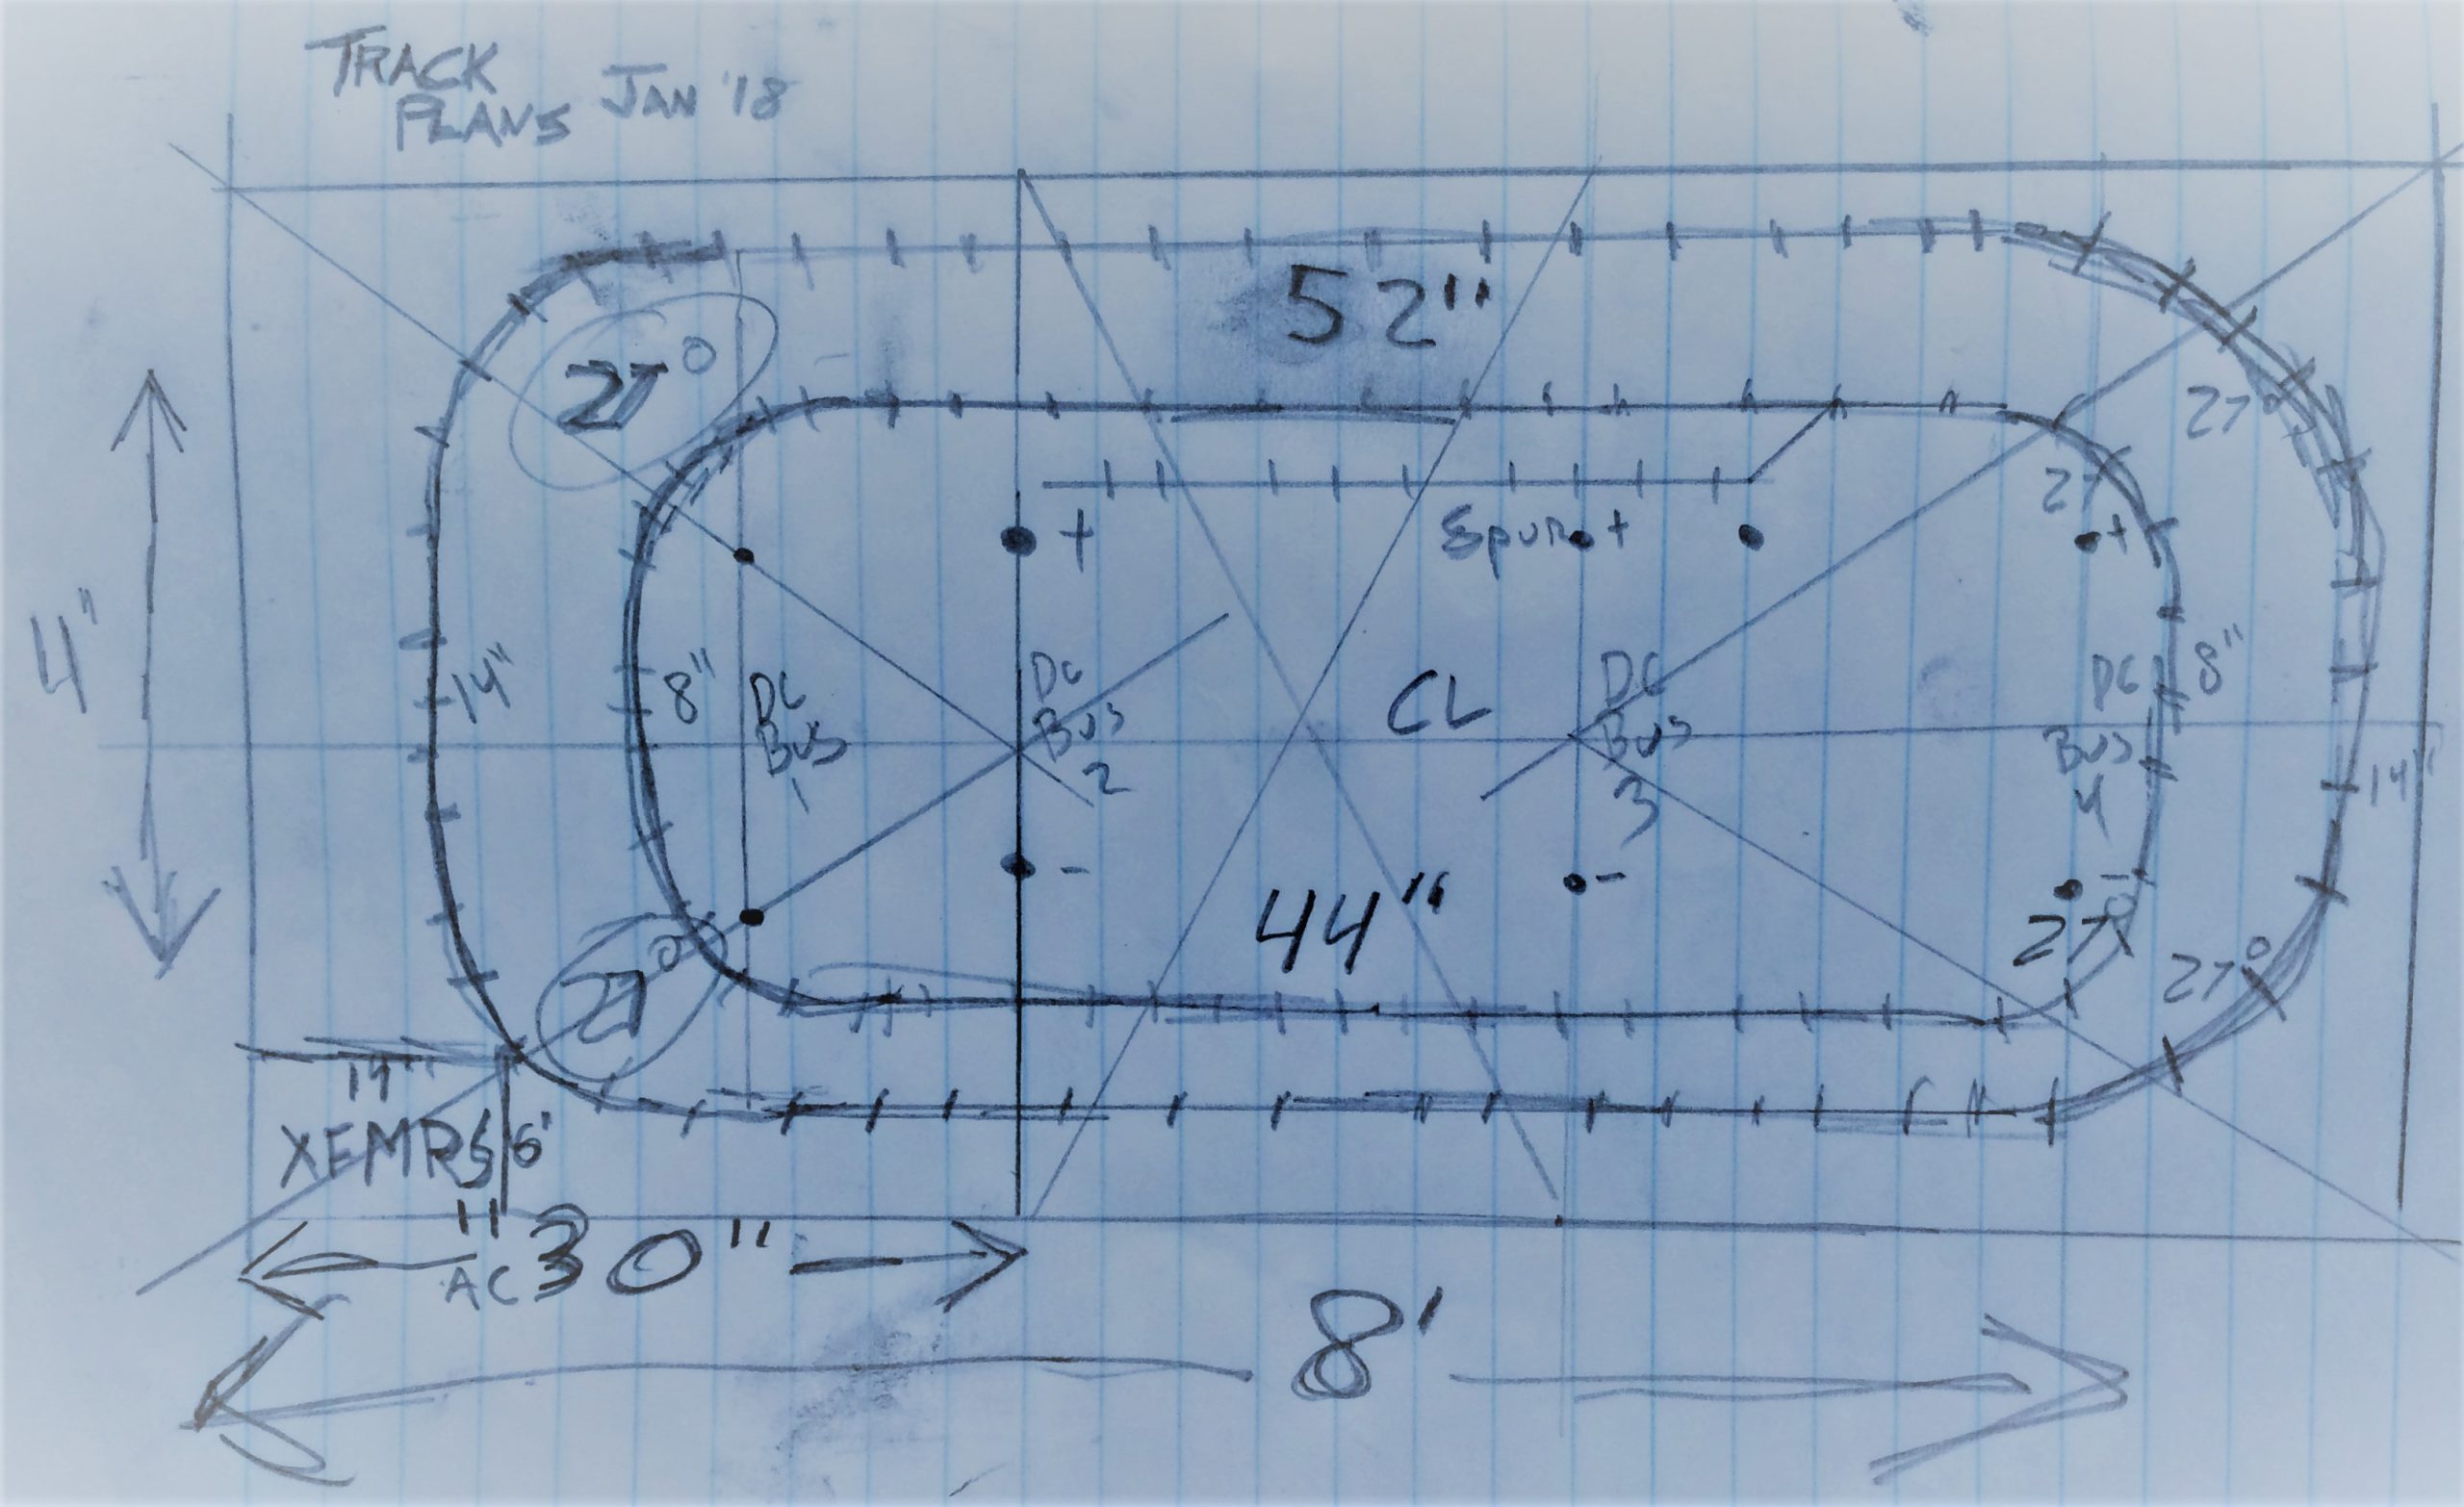 TRACK
PLANS JAN '18
52"
27°
27°
27
Spur + 
+
+
4"
14"
8"
DC
BUS
1
DC
BUS
2
CL
DC
BUS
3
DC
BUS
4
8"
14"
-
-
-
44"
27°
27°
27°
XFMRS 6'
AC 30"
8'